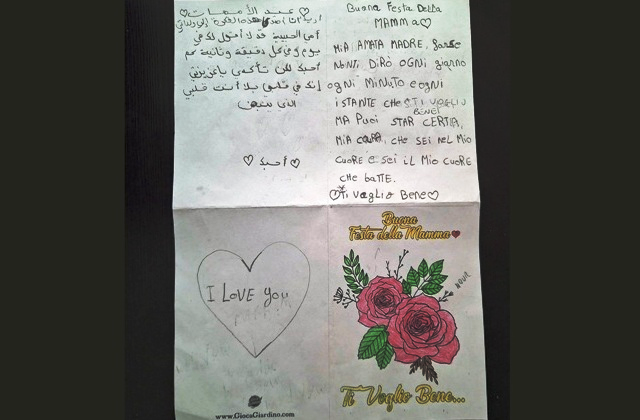 ♡عيد الأمهات♡
أريد أن أهدي هذه الفكرة إلى والدتي
أمي الحبيبة قد لا أقول لك في
يوم وفي كل دقيقة وثانية كم
أحبك لكن تأكدي يا عزيزتي
إنك في قلبي بلا أنت قلبي
الذي ينبض
♡أحبك♡
Buona Festa Della
MAMMA♡
MIA AMATA MADRE, forse
NON TI DIRÒ OGNI giorno
OGNI MINUTO e OGNI
ISTANTE CHE TI VOGLIO
BENE!
MA PUOI STAR CERTA,
MIA CARA, CHE SEI NEL MIO
CUORE e SEI IL MIO CUORE
CHE batte.
♡Ti voglio Bene♡
I LOVE you
www.GiocaGiardino.com
Buona
Festa della Mamma
NOUR
Ti Voglio Bene...